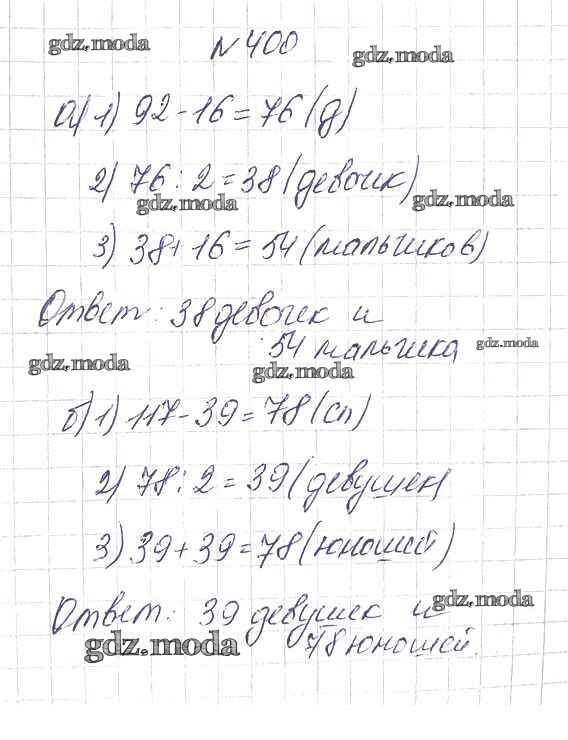 gdz.moda
№ 400
gdz.moda
а) 1) 92 - 16 = 76 (д)
2) 76 : 2 = 38 (девочек)
gdz.moda
gdz.moda
3) 38 + 16 = 54 (мальчиков)
Ответ: 38 девочек и
54 мальчика
gdz.moda
gdz.moda
gdz.moda
б) 1) 117 - 39 = 78 (сп)
2) 78 : 2 = 39 (девушек)
3) 39 + 39 = 78 (юношей)
Ответ: 39 девушек и
gdz.moda
78 юношей.
gdz.moda